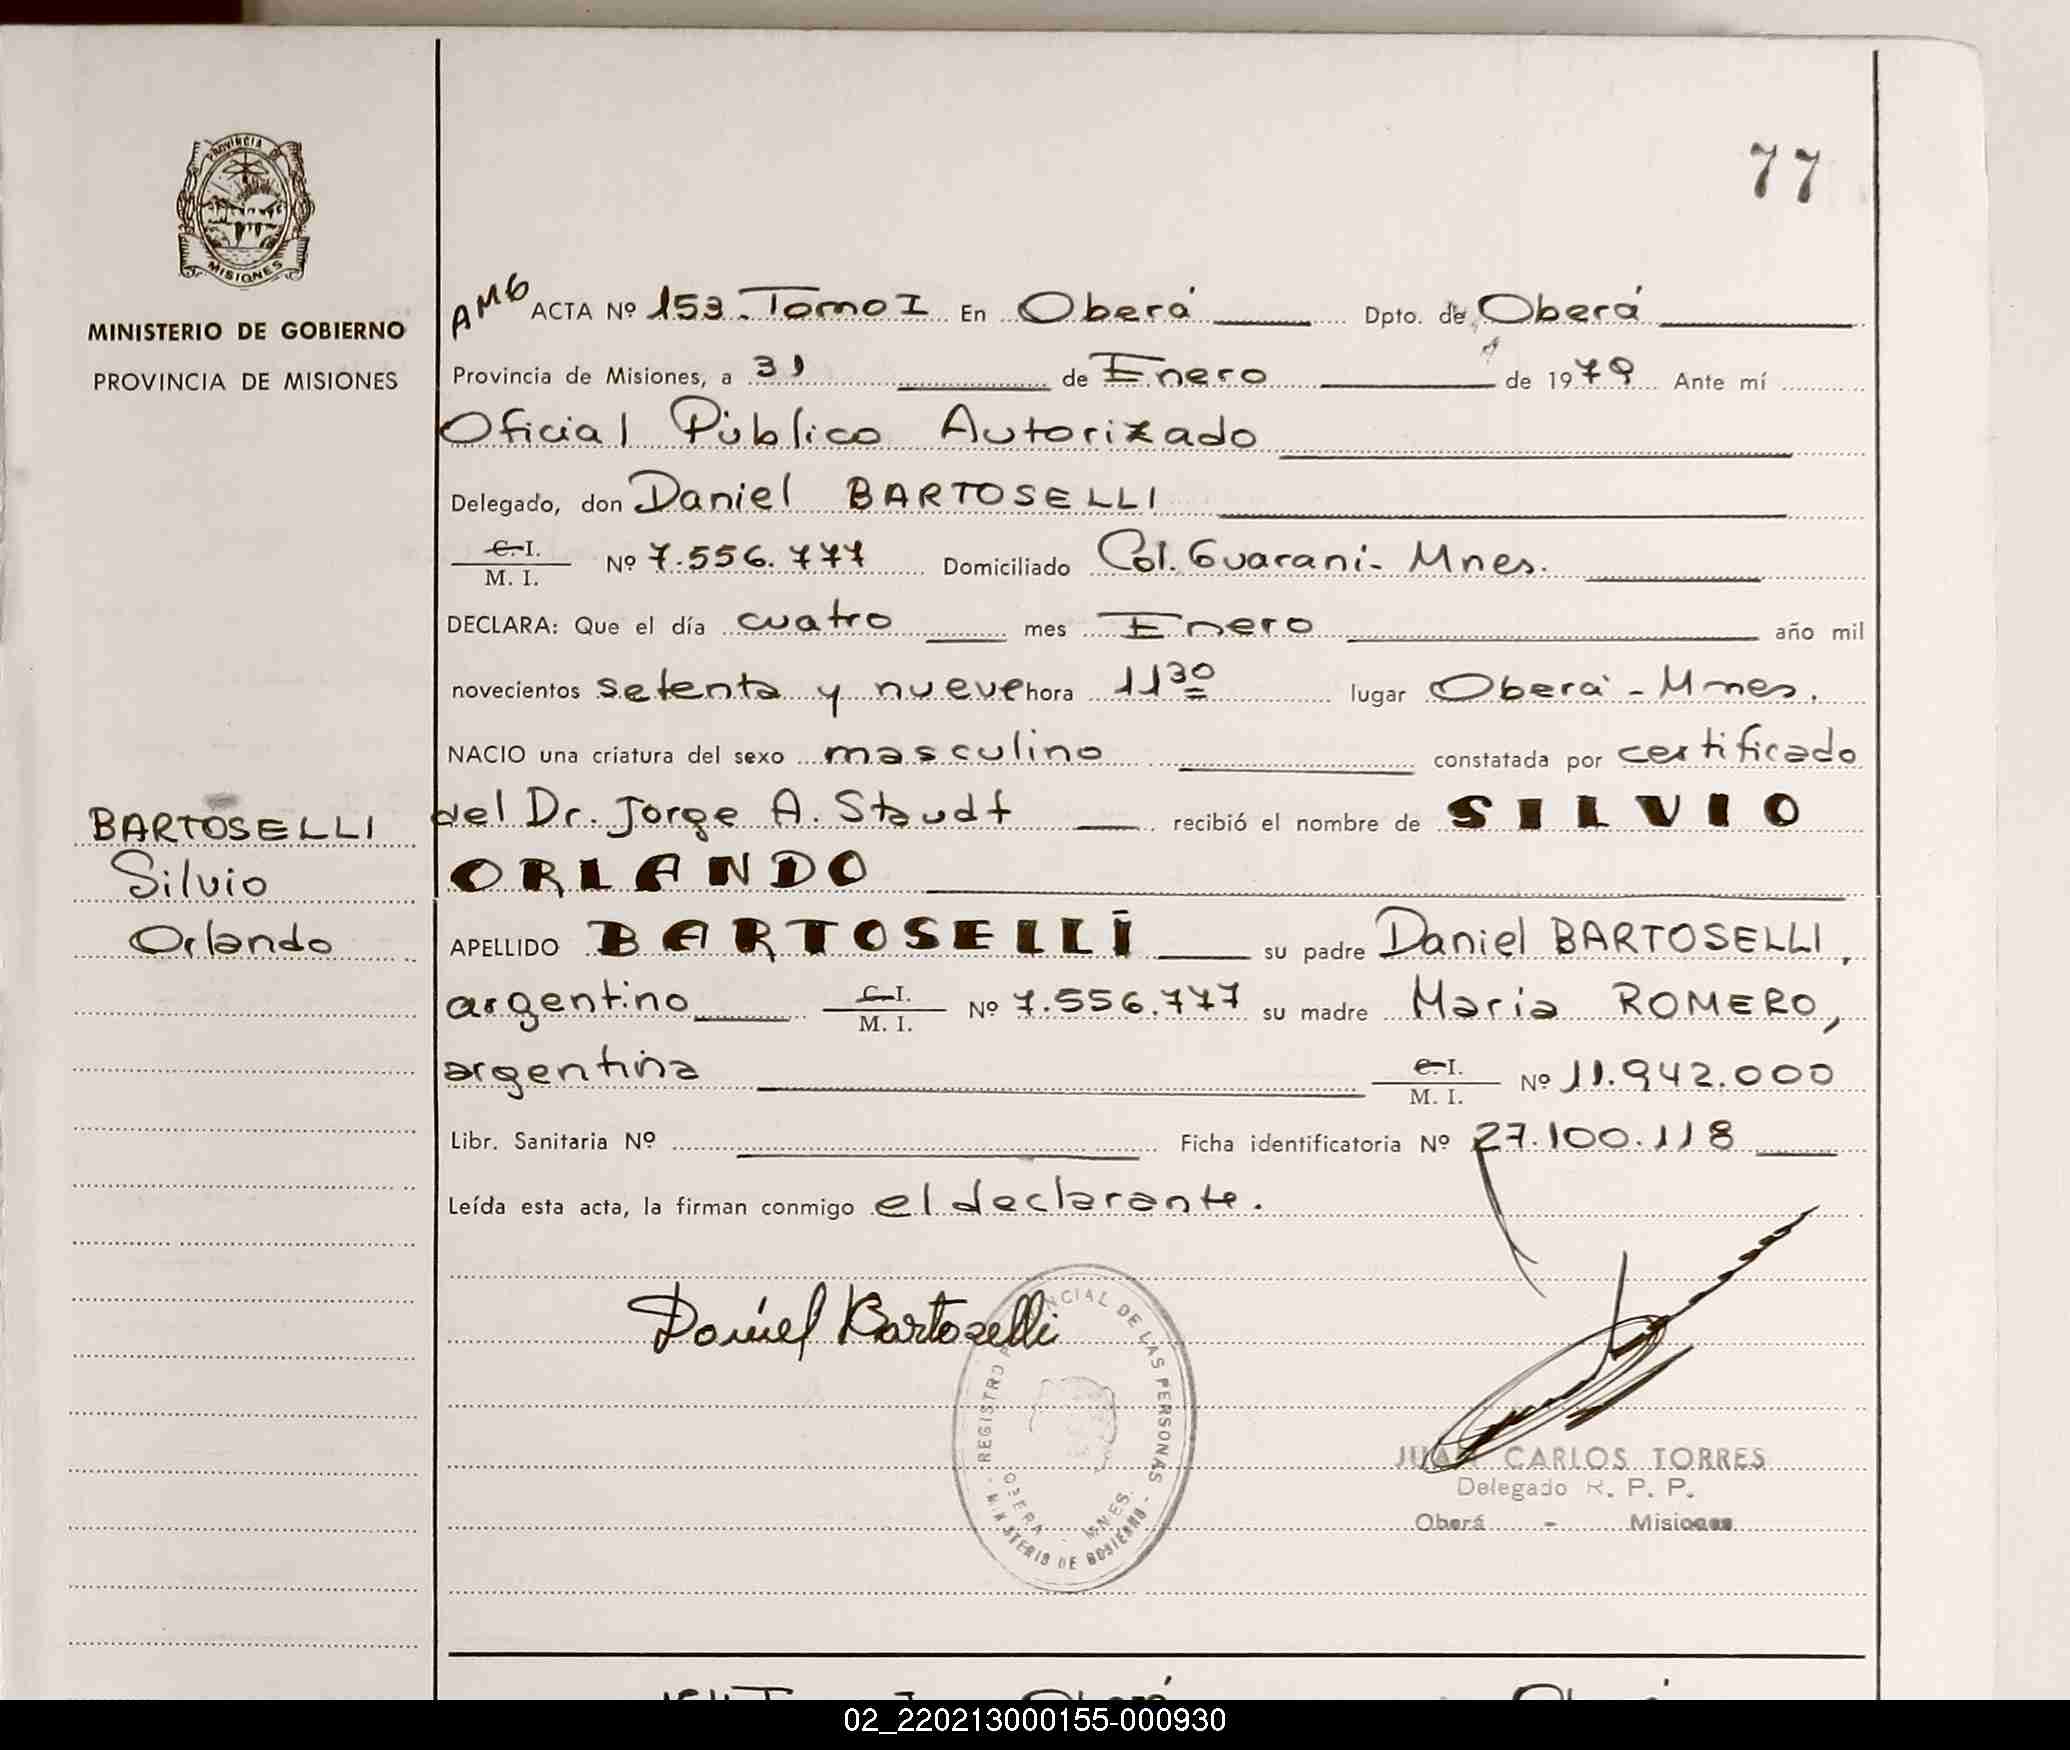 77
PROVINCIA DE
MISIONES
MINISTERIO DE GOBIERNO
PROVINCIA DE MISIONES
AMG ACTA Nº 153. Tomo I En Oberá Dpto. de Oberá
Provincia de Misiones, a 31 de Enero de 1979 Ante mí
Oficial Público Autorizado
Delegado, don Daniel BARTOSELLI
C. I.
M. I. Nº 7.556.777 Domiciliado Col. Guaraní - Mnes.
DECLARA: Que el día cuatro mes Enero año mil
novecientos setenta y nueve hora 11 30 lugar Oberá - Mnes.
NACIO una criatura del sexo masculino constatada por certificado
del Dr. Jorge A. Staudt recibió el nombre de SILVIO
ORLANDO
APELLIDO BARTOSELLI su padre Daniel BARTOSELLI,
argentino C. I.
M. I. Nº 7.556.777 su madre Maria ROMERO,
argentina C. I.
M. I. Nº 11.942.000
Libr. Sanitaria Nº Ficha identificatoria Nº 27.100.118
Leída esta acta, la firman conmigo el declarante.
BARTOSELLI
Silvio
Orlando
Daniel Bartoselli
REGISTRO PROVINCIAL DE LAS PERSONAS
OBERA - MNES.
MINISTERIO DE GOBIERNO
JUAN CARLOS TORRES
Delegado R. P. P.
Oberá - Misiones
02_220213000155-000930